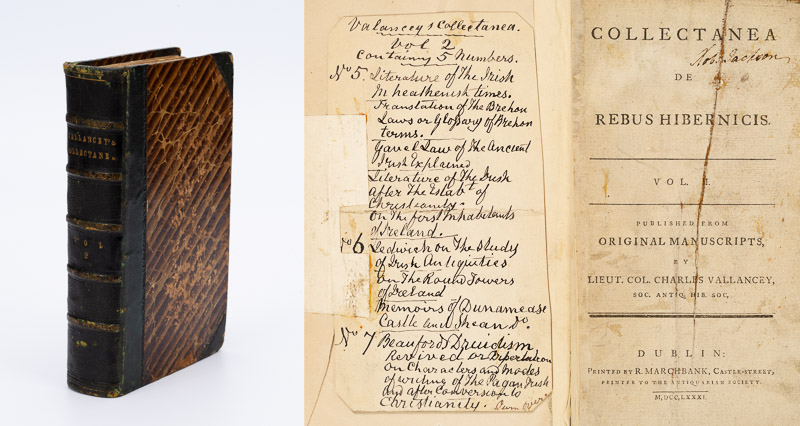 VALLANCEY'S
COLLECTANEA
VOL
2
Valancey's Collectanea.
Vol 2
Containing 5 Numbers.
No 5. Literature of The Irish
In heathenish times.
Translation of The Brehon
Laws or Glossary of Brehon
terms.
Gavel Law of The Ancient
Irish Explained
Literature of The Irish
after The Estabt of
Christianity.
On The first Inhabitants
of Ireland.
No 6 Ledwich on The Study
of Irish Antiquities
On The Round Towers
of Ireland
Memoirs of Dunamease
Castle and Shean Do.
No 7 Beaufords Druidism
Revived or Dissertation
on Characters and Modes
of writing of The Pagan Irish
and after Conversion to
Christianity. Turn over
COLLECTANEA
Robt Jackson
DE
REBUS HIBERNICIS.
VOL. I.
PUBLISHED FROM
ORIGINAL MANUSCRIPTS,
BY
LIEUT. COL. CHARLES VALLANCEY,
SOC. ANTIQ. HIB. SOC.
DUBLIN:
PRINTED BY R. MARCHBANK, CASTLE-STREET,
PRINTER TO THE ANTIQUARIAN SOCIETY.
M,DCC,LXXXI.